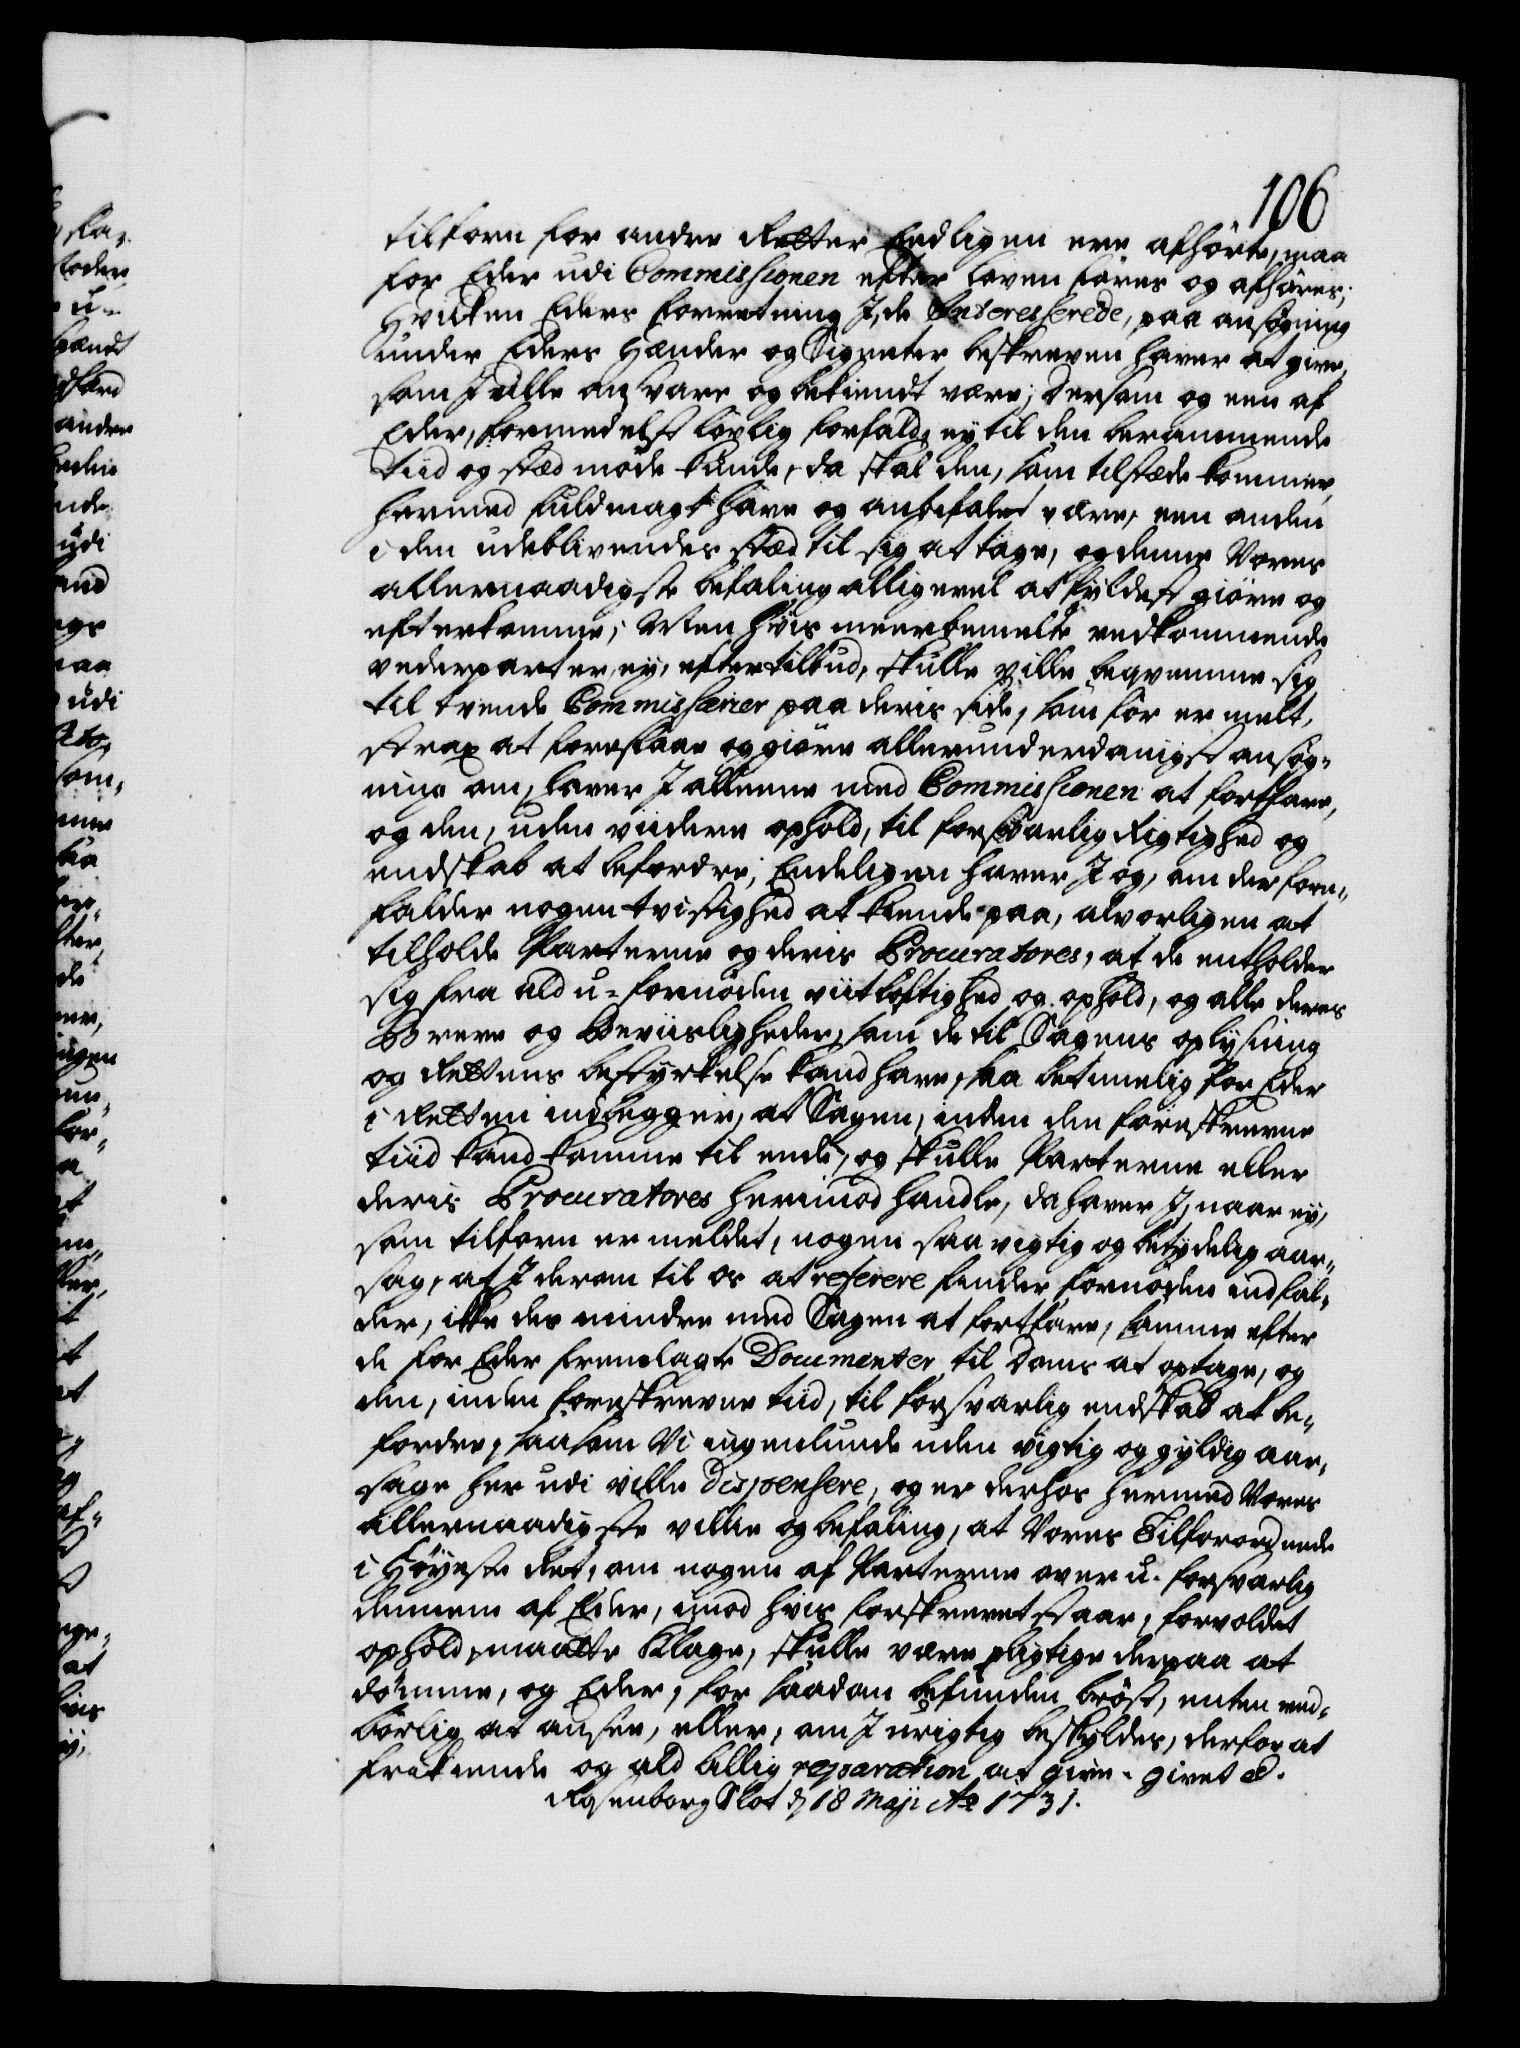 106
tilforn for andre Retter Eedligen ere afhørte, maa
for Eder udi Commissionen efter loven føres og afhøres;
Hvilken Eders forretning I, de Interesserede, paa ansøgning
under Eders Hænder og Signeter beskreven haver at give,
som I ville ansvare og bekiendt være; dersom og een af
Eder, formedelst lovlig forfald, ey til den berammende
tiid og stæd møde kunde, da skal den, som tilstæde kommer,
hermed fuldmagt have og anbefalet være, een anden
i den udeblivendes stæd til sig at tage, og denne Vores
allernaadigste befaling alligevel at fyldest giøre og
efterkomme; Men hvis meerbemelte vedkommende
vederparter, ey, efter tilbud, skulle ville beqvemme sig
til tvende Commissarier paa deris side, som før er melt,
strax at foreslaae og giøre allerunderdanigst ansøg-
ning om, haver I alleene med Commissionen at fortfare,
og den, uden viidere ophold, til forsvarlig Rigtighed og
endskab at befordre; Endeligen haver I og, om der fore-
falder nogen tvistighed at kiende paa, alvorligen at
tilholde Parterne og deris Procuratores, at de entholder
sig fra ald u-fornøden viitløftighed og ophold, og alle deres
Breve og Beviisligheder, som de til Sagens oplysning
og Rettens bestyrkelse kand have, saa betimelig for Eder
i Retten indlegger, at Sagen, inden den foreskrevne
tiid kand komme til ende, og skulle Parterne eller
deris Procuratores herimod handle, da haver I, naar ey,
som tilforn er meldet, nogen saa vigtig og betydelig aar-
sag, at I derom til os at referere finder fornøden indfal-
der, ikke des mindre med Sagen at fortfare, samme efter
de for Eder fremlagte Documenter til Doms at optage, og
den, inden foreskrevne tiid, til forsvarlig endskab at be-
fordre, saasom Vi ingenlunde uden vigtig og gyldig aar-
sage her udi ville dispensere, og er derhos hermed Vores
allernaadigste villie og befaling, at Vores Tilforordnede
i Høyeste Ret, om nogen af Parterne over u-forsvarlig
dennem af Eder, imod hvis forskrevet staar, forvoldet
ophold, maatte Klage, skulle være pligtige derpaa at
dømme, og Eder, for saadan befunden brøst, enten ved-
børlig at ansee, eller, om I urigtig beskyldes, derfor at
frikiende og ald billig reparation at give. Givet &.
Rosenborg Slot d 18 Maji Ao 1731.